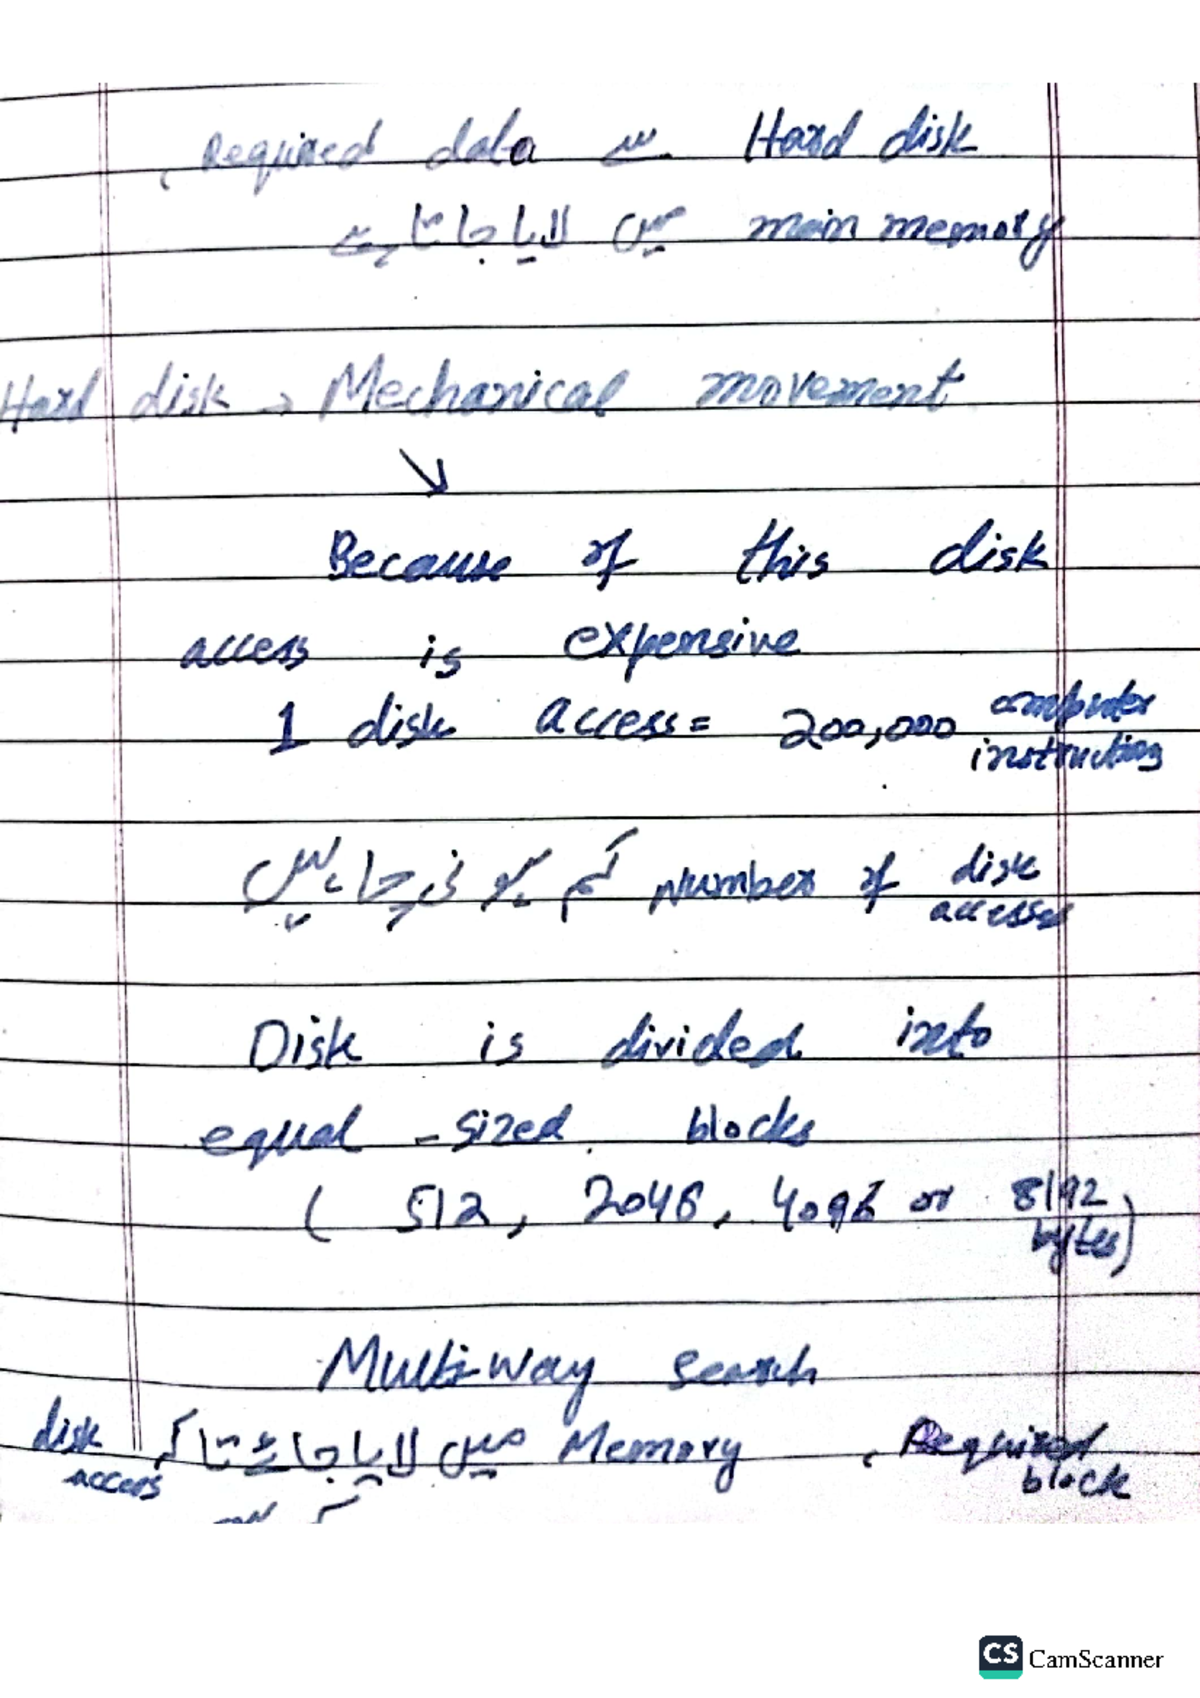 Hard disk سے Required data،
main memory میں لایا جاتا ہے
Hard disk → Mechanical movement
↘
Because of this disk
access is expensive
1 disk access = 200,000 computer instructing
Number of disk accesses کم ہونی چاہئیں
Disk is divided into
equal-sized blocks
( 512, 2048, 4096 or 8192 bytes)
Multi-way search
Required block، Memory میں لایا جائے تاکہ disk access
CS CamScanner